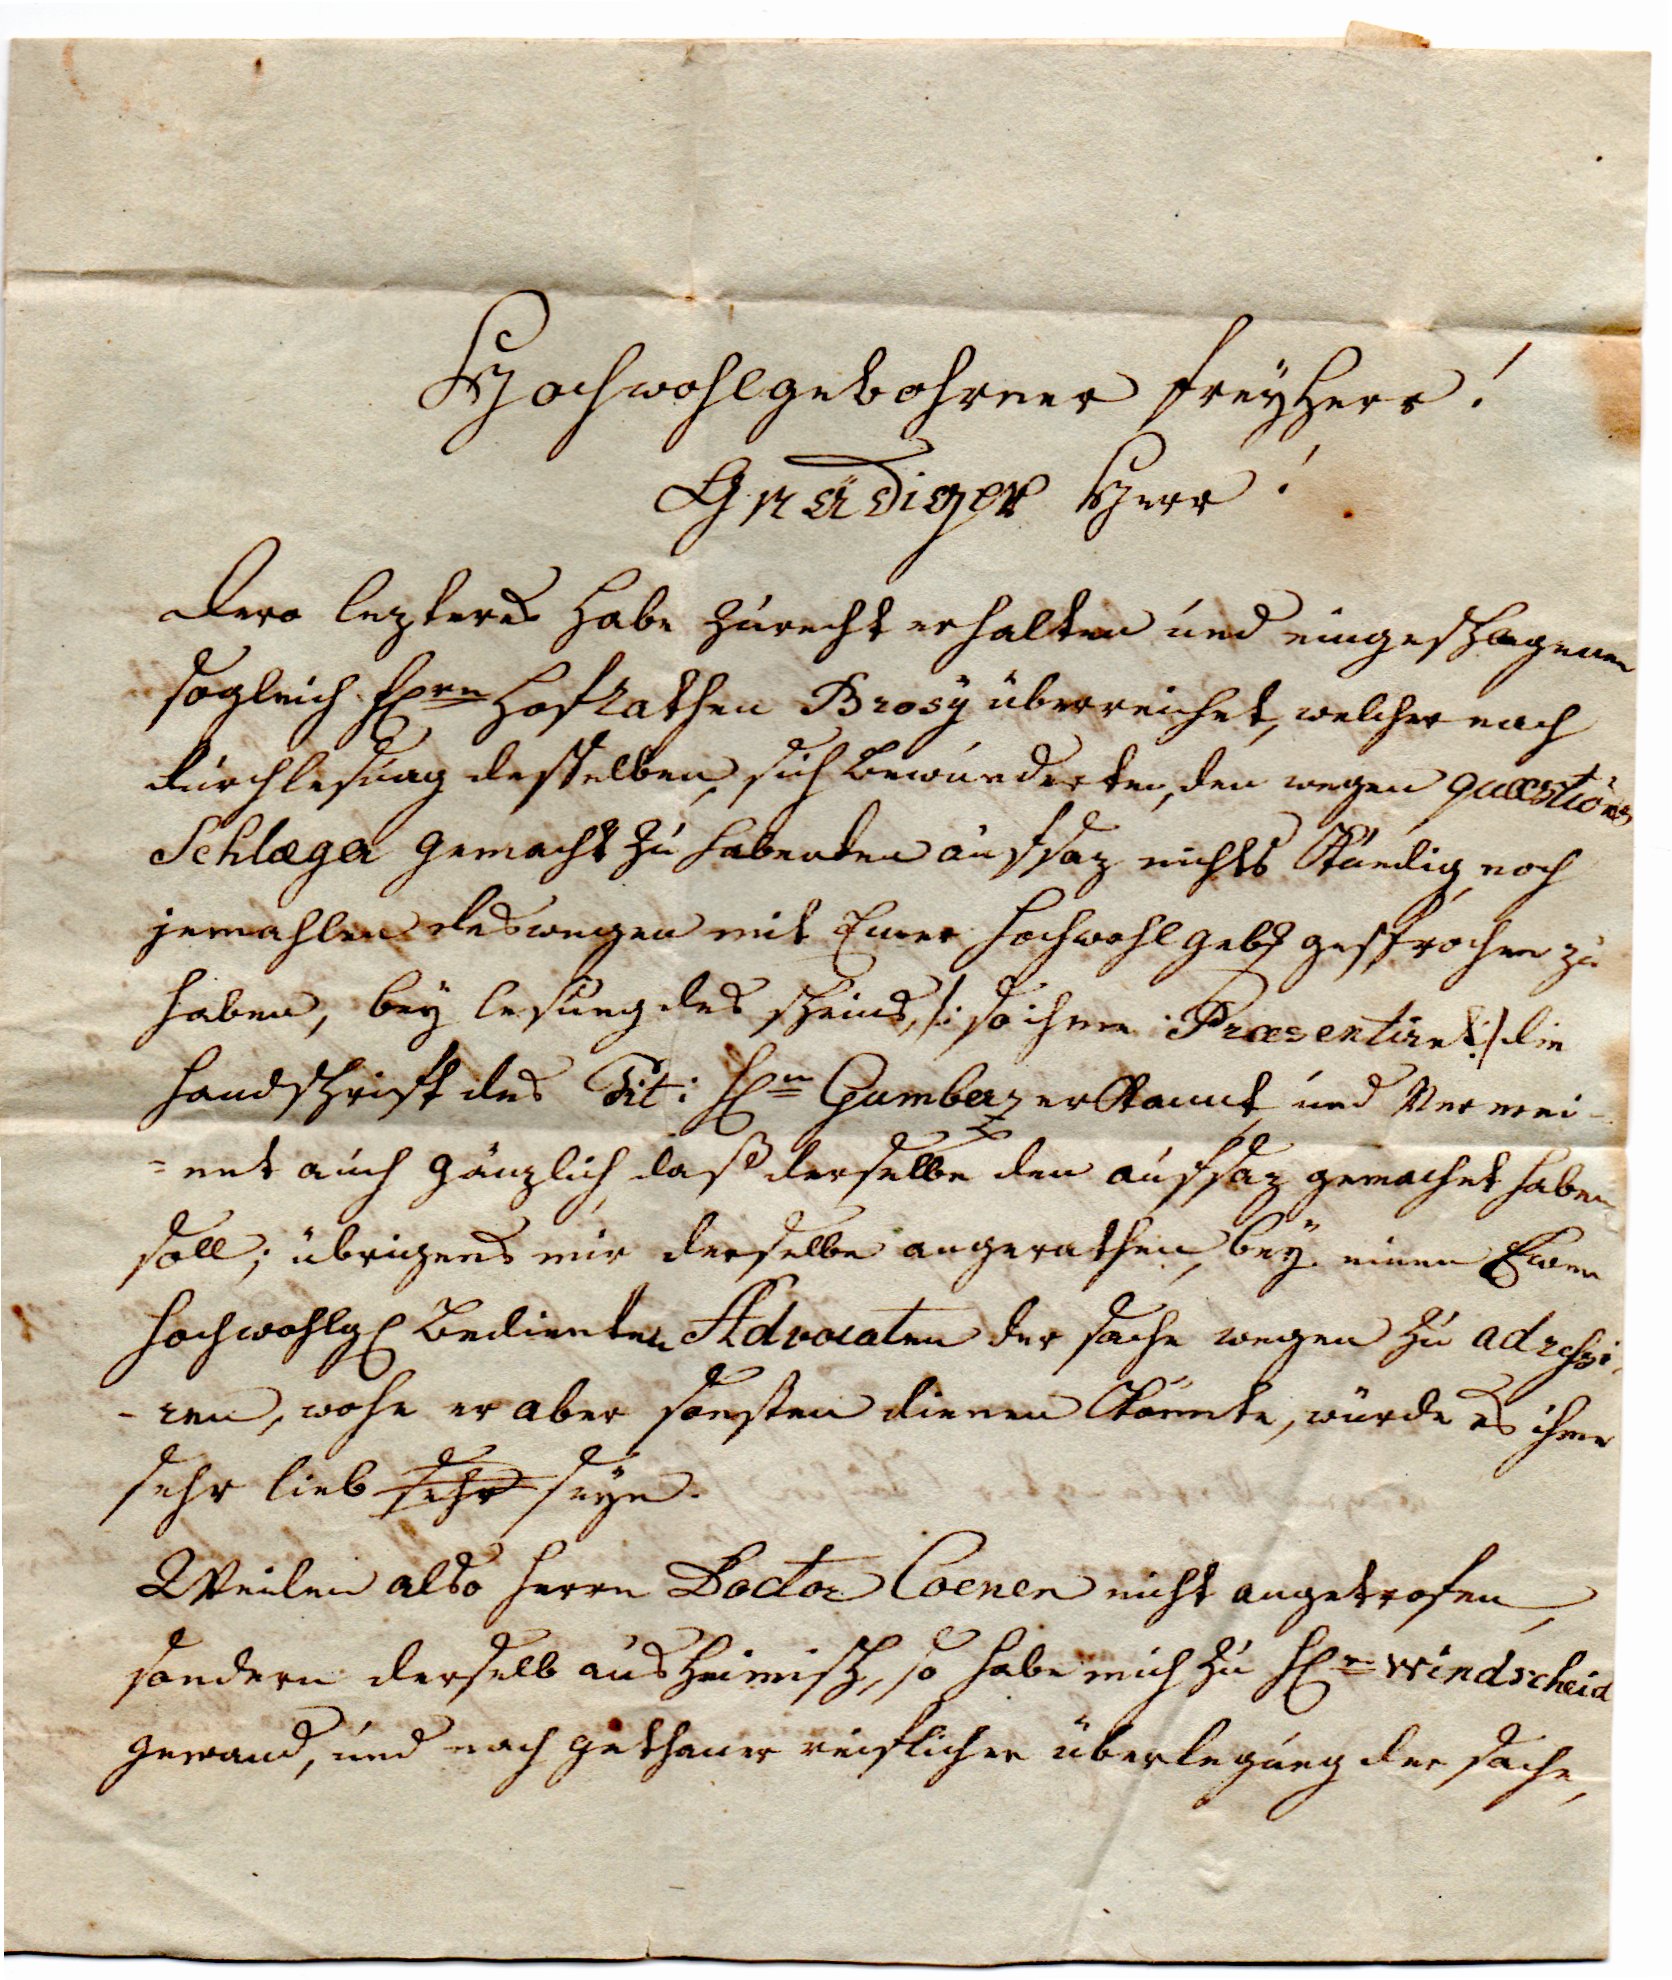 Hochwohlgebohrner FreyHerr!
Gnädiger Herr!
Dero lezteres habe zurecht erhalten und eingeschlagenen
sogleich Herrn Hofrathen Brosÿ überreichet, welcher nach
durchlesung desselben, sich bewunderte, den wegen quæstions
Schlæger gemacht zu habenden aufsaz nichts kündig, noch
jemahlen deswegen mit Euer Hochwohlgeb. gesprochen zu
haben, beÿ lesung des scheins, /: so ihme Præsentiret :/ die
handschrift des Tit: Hn Gumberz erkannt, und Vermei-
=net auch gänzlich, daß derselbe den aufsaz gemachet haben
soll; übrigens mir derselbe angerathen, beÿ einen Euer
Hochwohlg. bedienten Advocaten der sache wegen zu adressi-
-ren, wohe er aber sonsten dienen könnte, würde es ihme
sehr lieb sehr seÿn.
Weilen also Herrn Doctor Coenen nicht angetrofen,
sondern derselb ausheimisch, so habe mich zu Hn Windscheid
gewand, und nach gethaner reiflicher überlegung der sache,